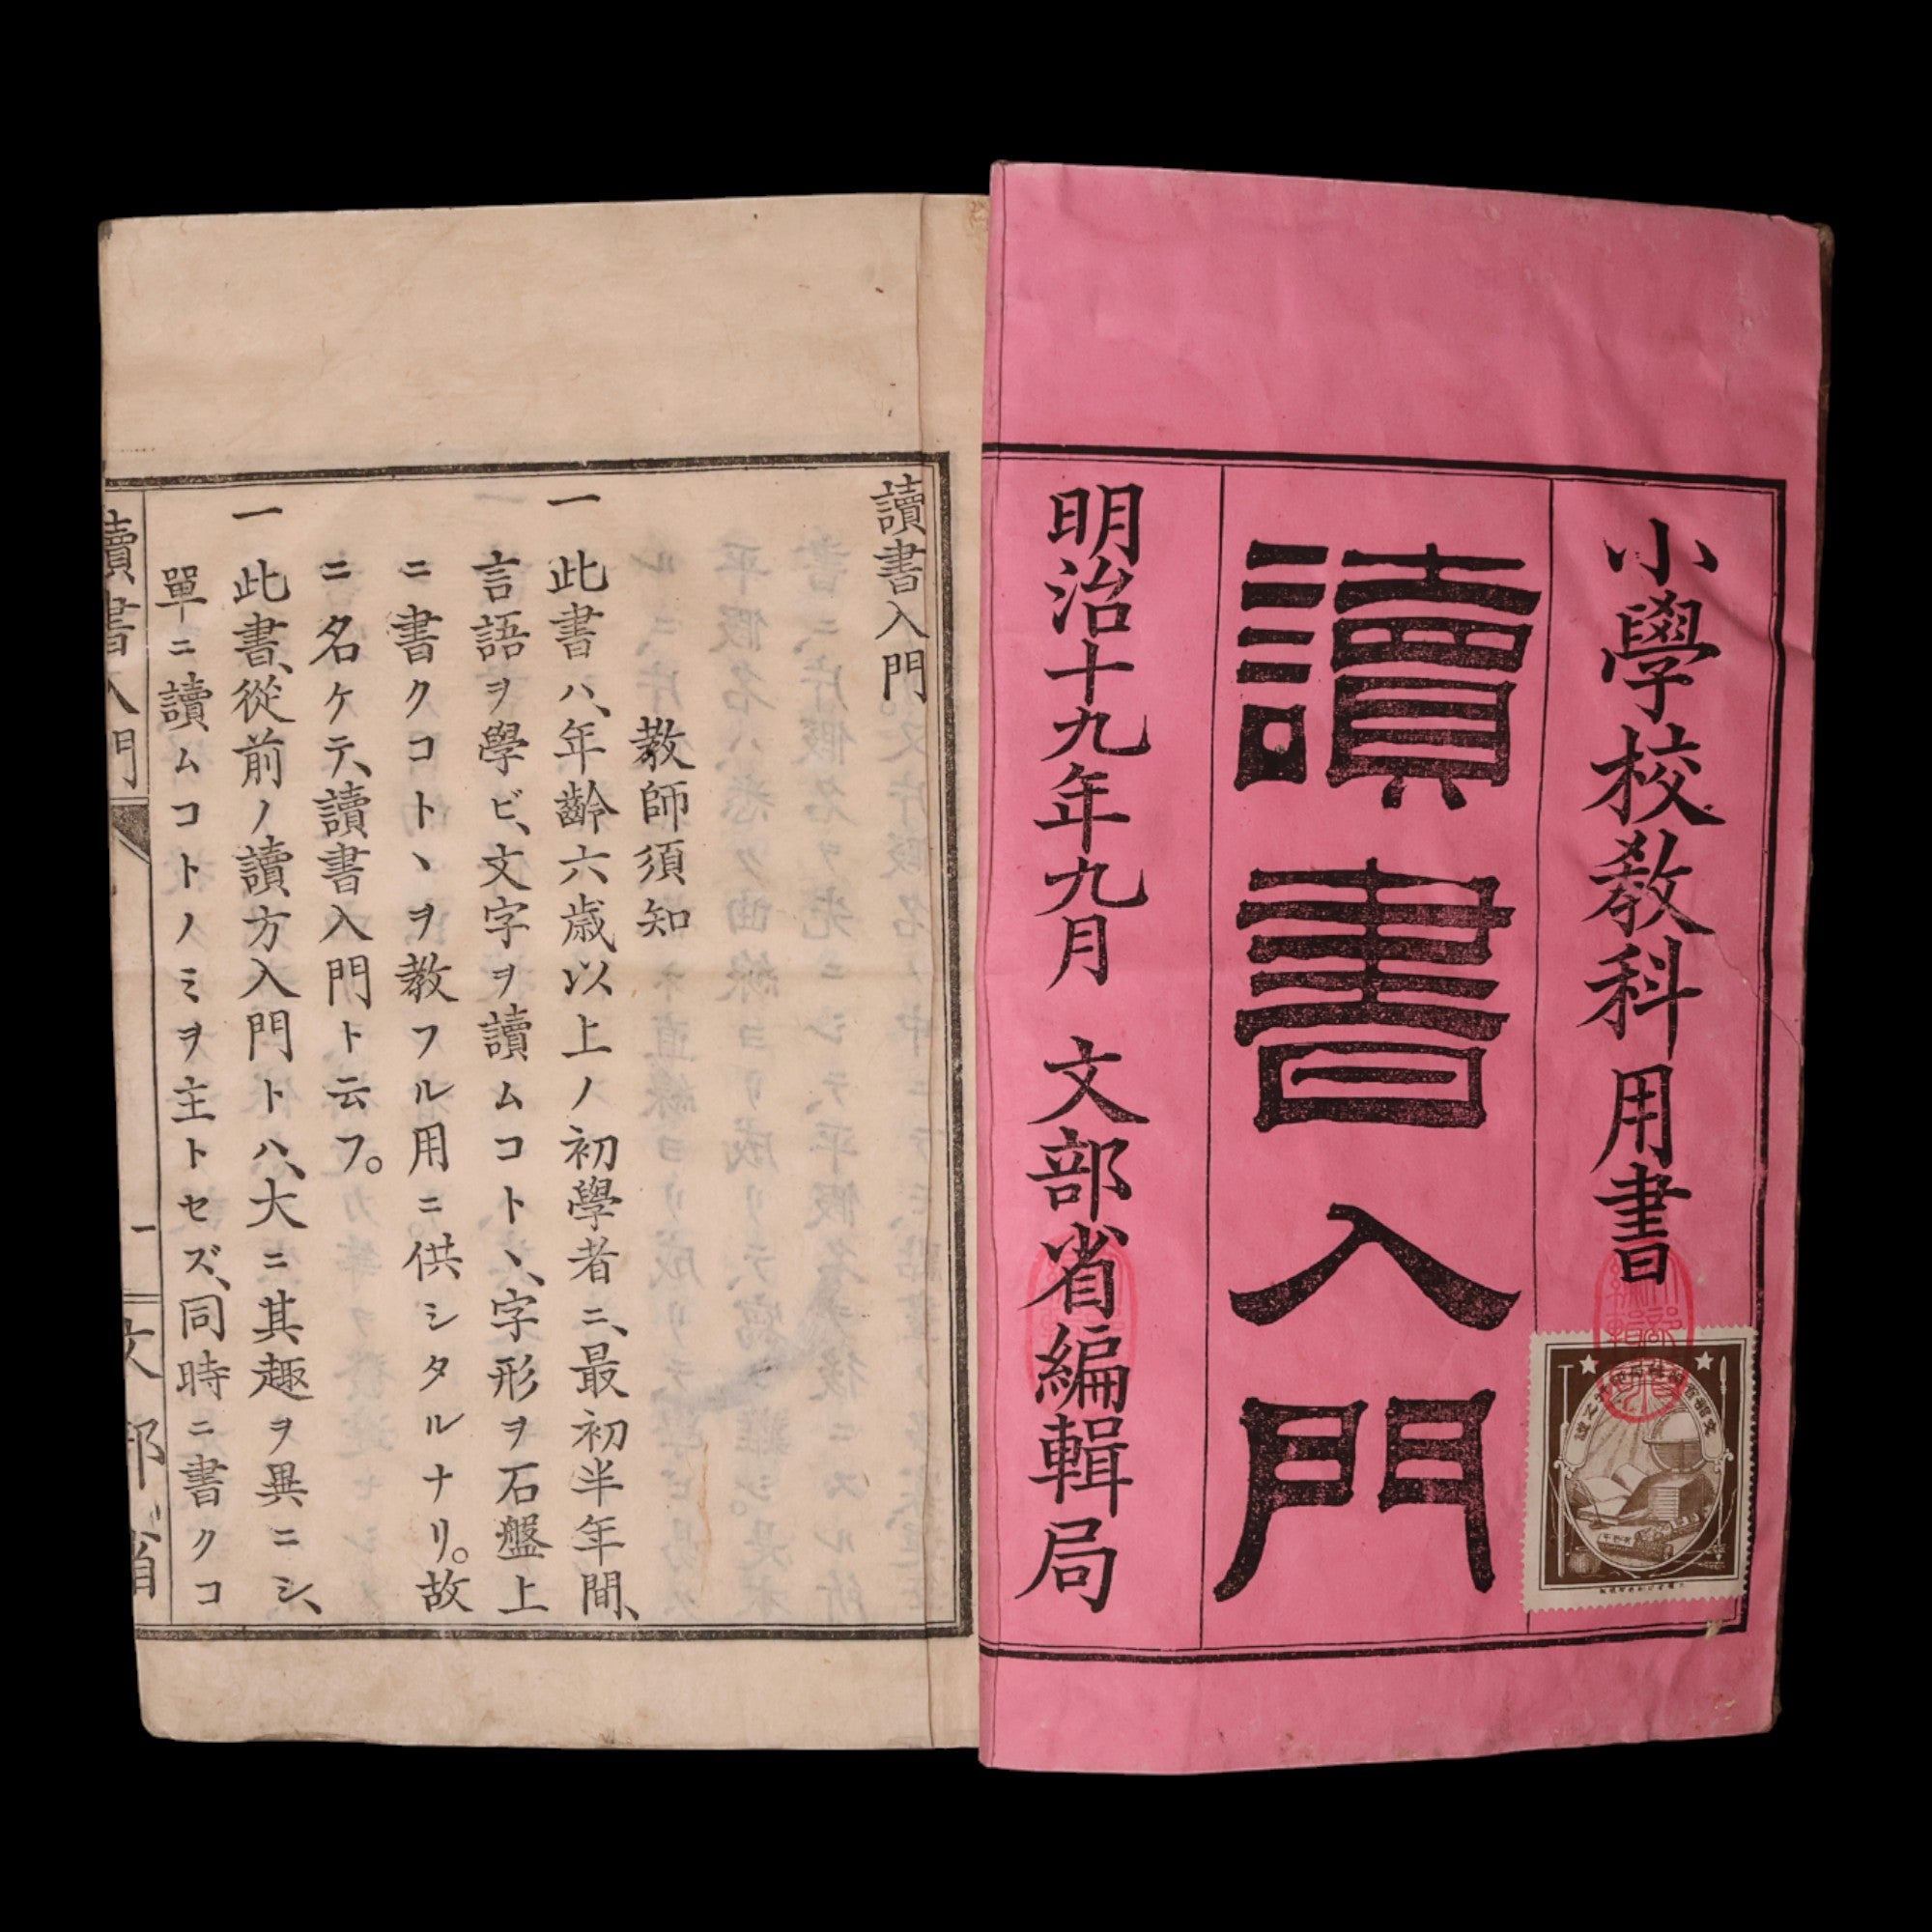 小學校教科用書
讀書入門
明治十九年九月 文部省編輯局
讀書入門
教師須知
一此書ハ、年齡六歳以上ノ初學者ニ、最初半年間、
言語ヲ學ビ、文字ヲ讀ムコトヽ、字形ヲ石盤上
ニ書クコトヽヲ教フル用ニ供シタルナリ。故
ニ名ケテ、讀書入門ト云フ。
一此書、從前ノ讀方入門トハ、大ニ其趣ヲ異ニシ、
單ニ讀ムコトノミヲ主トセズ、同時ニ書クコ
讀書入門 一 文部省